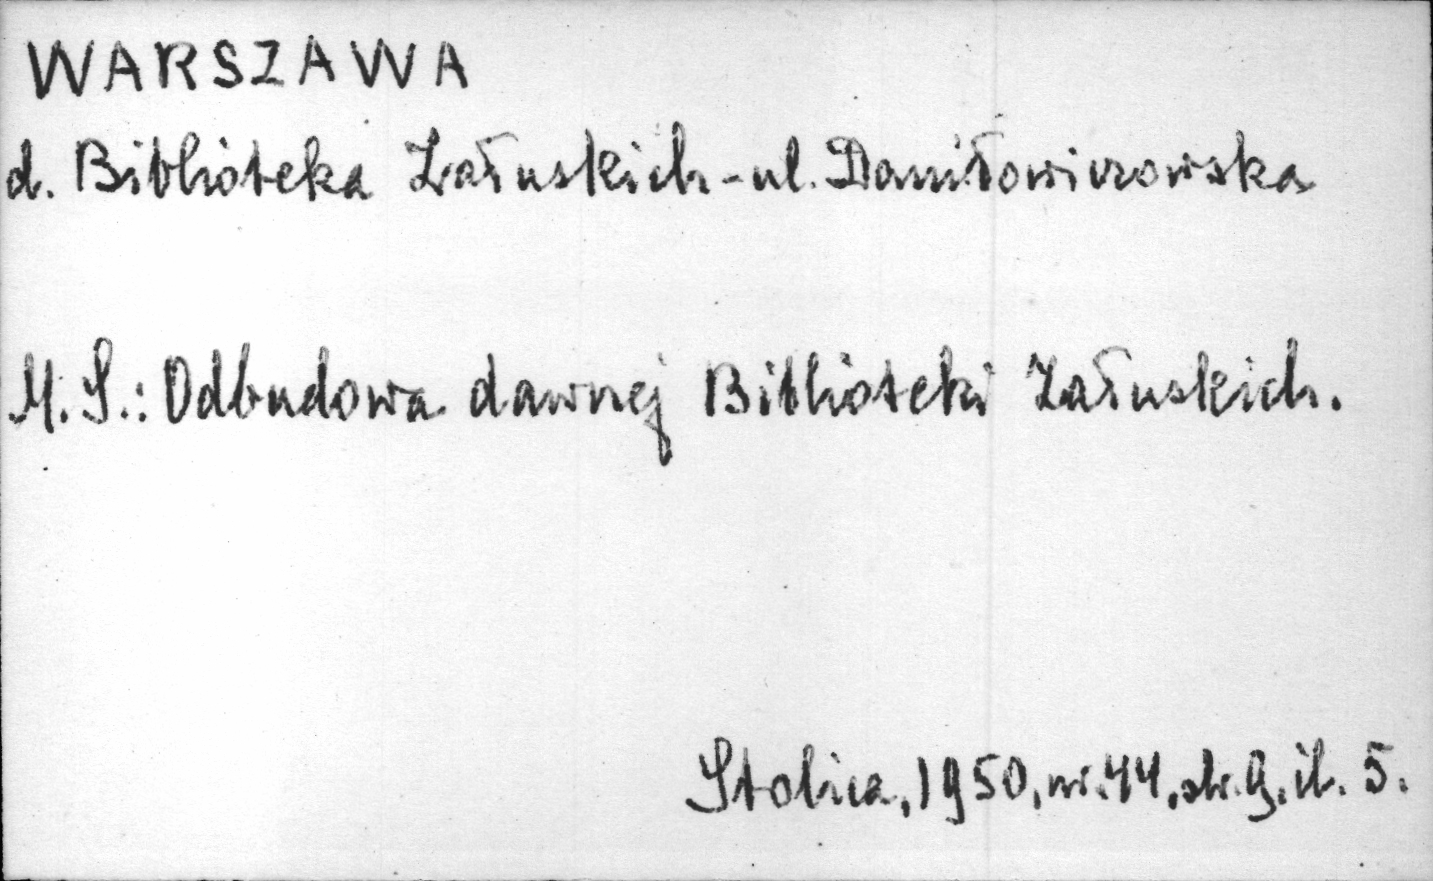 WARSZAWA
d. Biblioteka Załuskich - ul. Daniłowiczowska
M. S.: Odbudowa dawnej Biblioteki Załuskich.
Stolica, 1950, nr. 44, str. 9, il. 5.